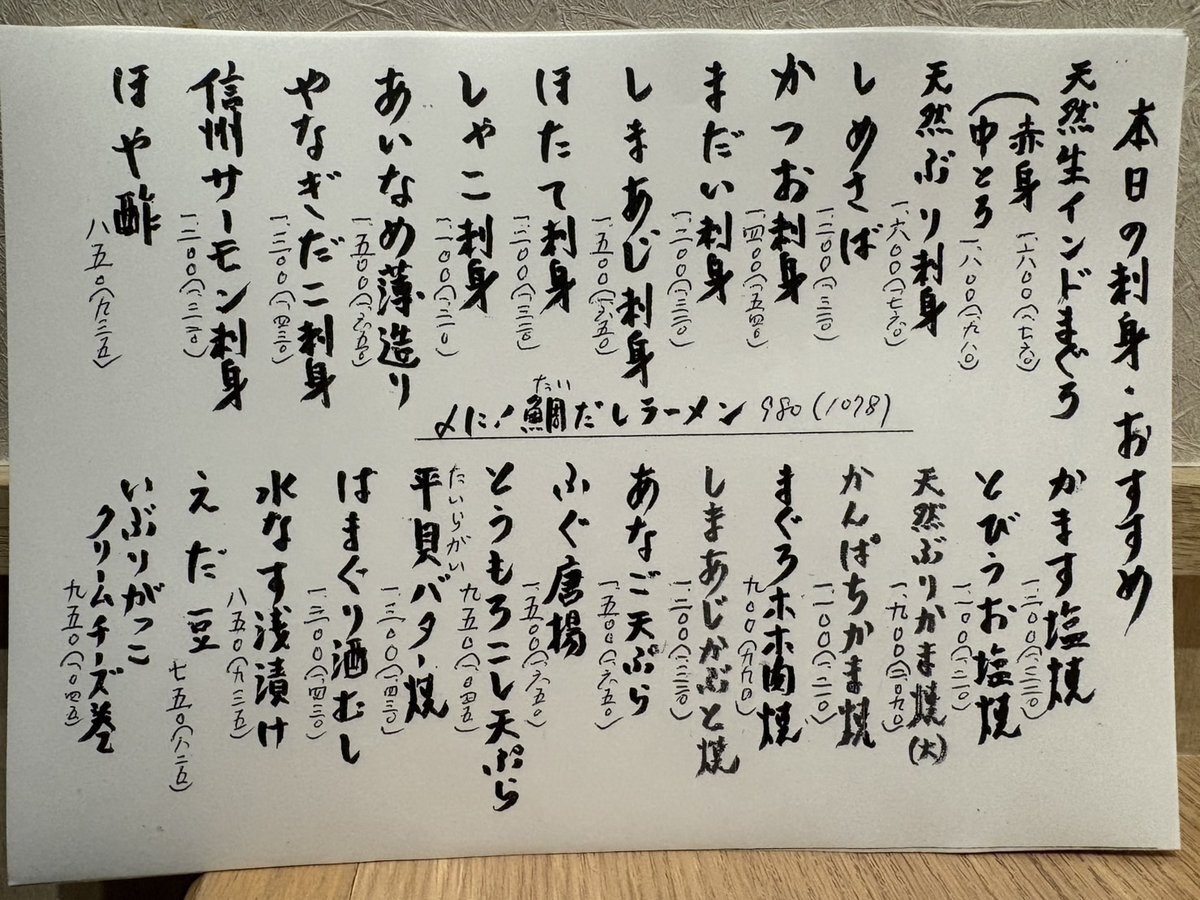 本日の刺身・おすすめ
天然生インドまぐろ
(赤身 一、六〇〇(一、七六〇)
中とろ 一、八〇〇(一、九八〇)
天然ぶり刺身
一、六〇〇(一、七六〇)
しめさば
一、二〇〇(一、三二〇)
かつお刺身
一、四〇〇(一、五四〇)
まだい刺身
一、二〇〇(一、三二〇)
しまあじ刺身
一、五〇〇(一、六五〇)
ほたて刺身
一、二〇〇(一、三二〇)
しゃこ刺身
一、一〇〇(一、二一〇)
あいなめ薄造り
一、五〇〇(一、六五〇)
やなぎだこ刺身
一、三〇〇(一、四三〇)
信州サーモン刺身
一、二〇〇(一、三二〇)
ほや酢
八五〇(九三五)
たい
〆に!鯛だしラーメン 980(1078)
かます塩焼
一、二〇〇(一、三二〇)
とびうお塩焼
一、一〇〇(一、二一〇)
天然ぶりかま焼(大)
一、九〇〇(二、〇九〇)
かんぱちかま焼
一、一〇〇(一、二一〇)
まぐろホホ肉焼
九〇〇(九九〇)
しまあじかぶと焼
一、二〇〇(一、三二〇)
あなご天ぷら
一、五〇〇(一、六五〇)
ふぐ唐揚
一、五〇〇(一、六五〇)
とうもろこし天ぷら
九五〇(一、〇四五)
たいらがい
平貝バター焼
一、三〇〇(一、四三〇)
はまぐり酒むし
一、三〇〇(一、四三〇)
水なす浅漬け
八五〇(九三五)
えだ豆
七五〇(八二五)
いぶりがっこ
クリームチーズ巻
九五〇(一、〇四五)